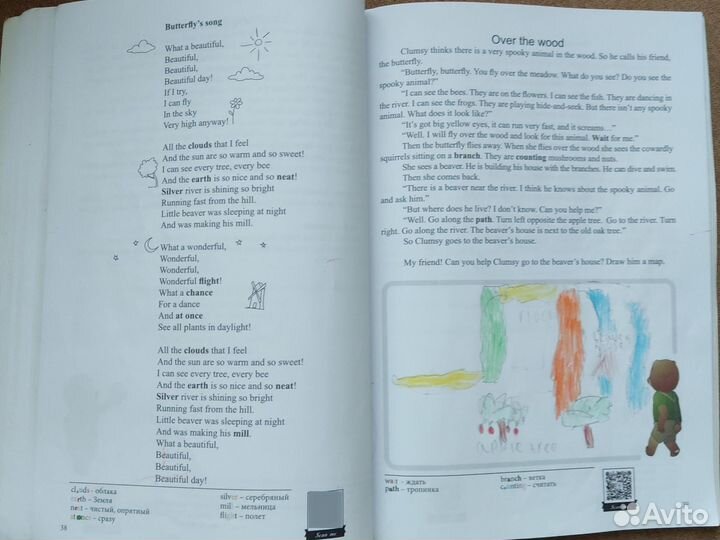 Butterfly's song
What a beautiful,
Beautiful,
Beautiful,
Beautiful day!
If I try,
I can fly
In the sky
Very high anyway!
All the clouds that I feel
And the sun are so warm and so sweet!
I can see every tree, every bee
And the earth is so nice and so neat!
Silver river is shining so bright
Running fast from the hill.
Little beaver was sleeping at night
And was making his mill.
What a wonderful,
Wonderful,
Wonderful,
Wonderful flight!
What a chance
For a dance
And at once
See all plants in daylight!
All the clouds that I feel
And the sun are so warm and so sweet!
I can see every tree, every bee
And the earth is so nice and so neat!
Silver river is shining so bright
Running fast from the hill.
Little beaver was sleeping at night
And was making his mill.
What a beautiful,
Beautiful,
Beautiful,
Beautiful day!
clouds - облака
earth – Земля
neat – чистый, опрятный
at once – сразу
silver – серебряный
mill – мельница
flight – полет
38
Scan me
Over the wood
Clumsy thinks there is a very spooky animal in the wood. So he calls his friend,
the butterfly.
"Butterfly, butterfly. You fly over the meadow. What do you see? Do you see the
spooky animal?"
"I can see the bees. They are on the flowers. I can see the fish. They are dancing in
the river. I can see the frogs. They are playing hide-and-seek. But there isn't any spooky
animal. What does it look like?"
"It's got big yellow eyes, it can run very fast, and it screams…"
"Well. I will fly over the wood and look for this animal. Wait for me."
Then the butterfly flies away. When she flies over the wood she sees the cowardly
squirrels sitting on a branch. They are counting mushrooms and nuts.
She sees a beaver. He is building his house with the branches. He can dive and swim.
Then she comes back.
"There is a beaver near the river. I think he knows about the spooky animal. Go
and ask him."
"But where does he live? I don't know. Can you help me?"
"Well. Go along the path. Turn left opposite the apple tree. Go to the river. Turn
right. Go along the river. The beaver's house is next to the old oak tree."
So Clumsy goes to the beaver's house.
My friend! Can you help Clumsy go to the beaver's house? Draw him a map.
APPLE TREE
wait – ждать
path – тропинка
branch – ветка
counting – считать
Avito